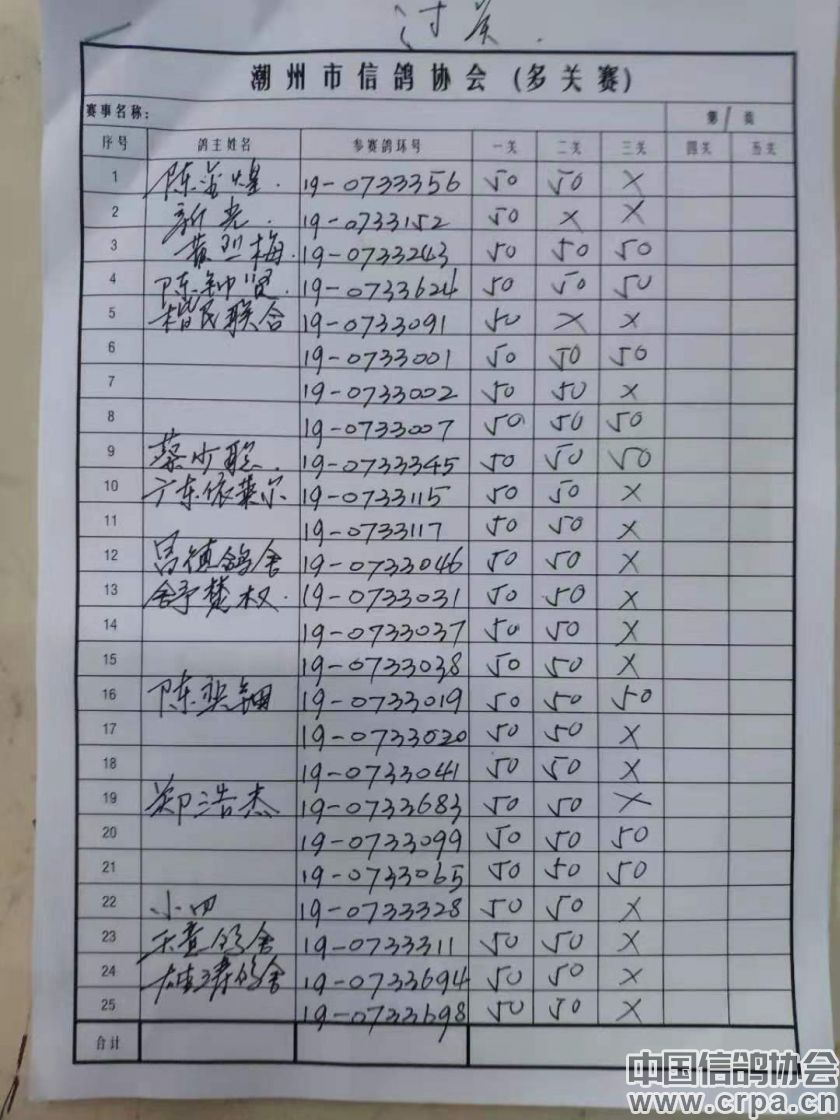 过关.
潮州市信鸽协会(多关赛)
赛事名称: 第1页
序号 鸽主姓名 参赛鸽环号 一关 二关 三关 四关 五关
1 陈 煌. 19-0733356 50 50 X
2 新光. 19-0733152 50 X X
3 黄烈梅. 19-0733243 50 50 50
4 陈钟贤. 19-0733624 50 50 50
5 楷民联合 19-0733091 50 X X
6 19-0733001 50 50 50
7 19-0733002 50 50 X
8 19-0733007 50 50 50
9 蔡少聪. 19-0733345 50 50 50
10 广东依莱尔 19-0733115 50 50 X
11 19-0733117 50 50 X
12 昌镇鸽舍 19-0733046 50 50 X
13 舒楚权. 19-0733031 50 50 X
14 19-0733037 50 50 X
15 19-0733038 50 50 X
16 陈奕钿 19-0733019 50 50 50
17 19-0733020 50 50 X
18 19-0733041 50 50 X
19 郑浩杰 19-0733683 50 50 X
20 19-0733099 50 50 50
21 19-0733065 50 50 50
22 小四 19-0733328 50 50 X
23 鸽舍 19-0733311 50 50 X
24 鸽舍 19-0733694 50 50 X
25 19-0733698 50 50 X
合计
中国信鸽协会
www.crpa.cn